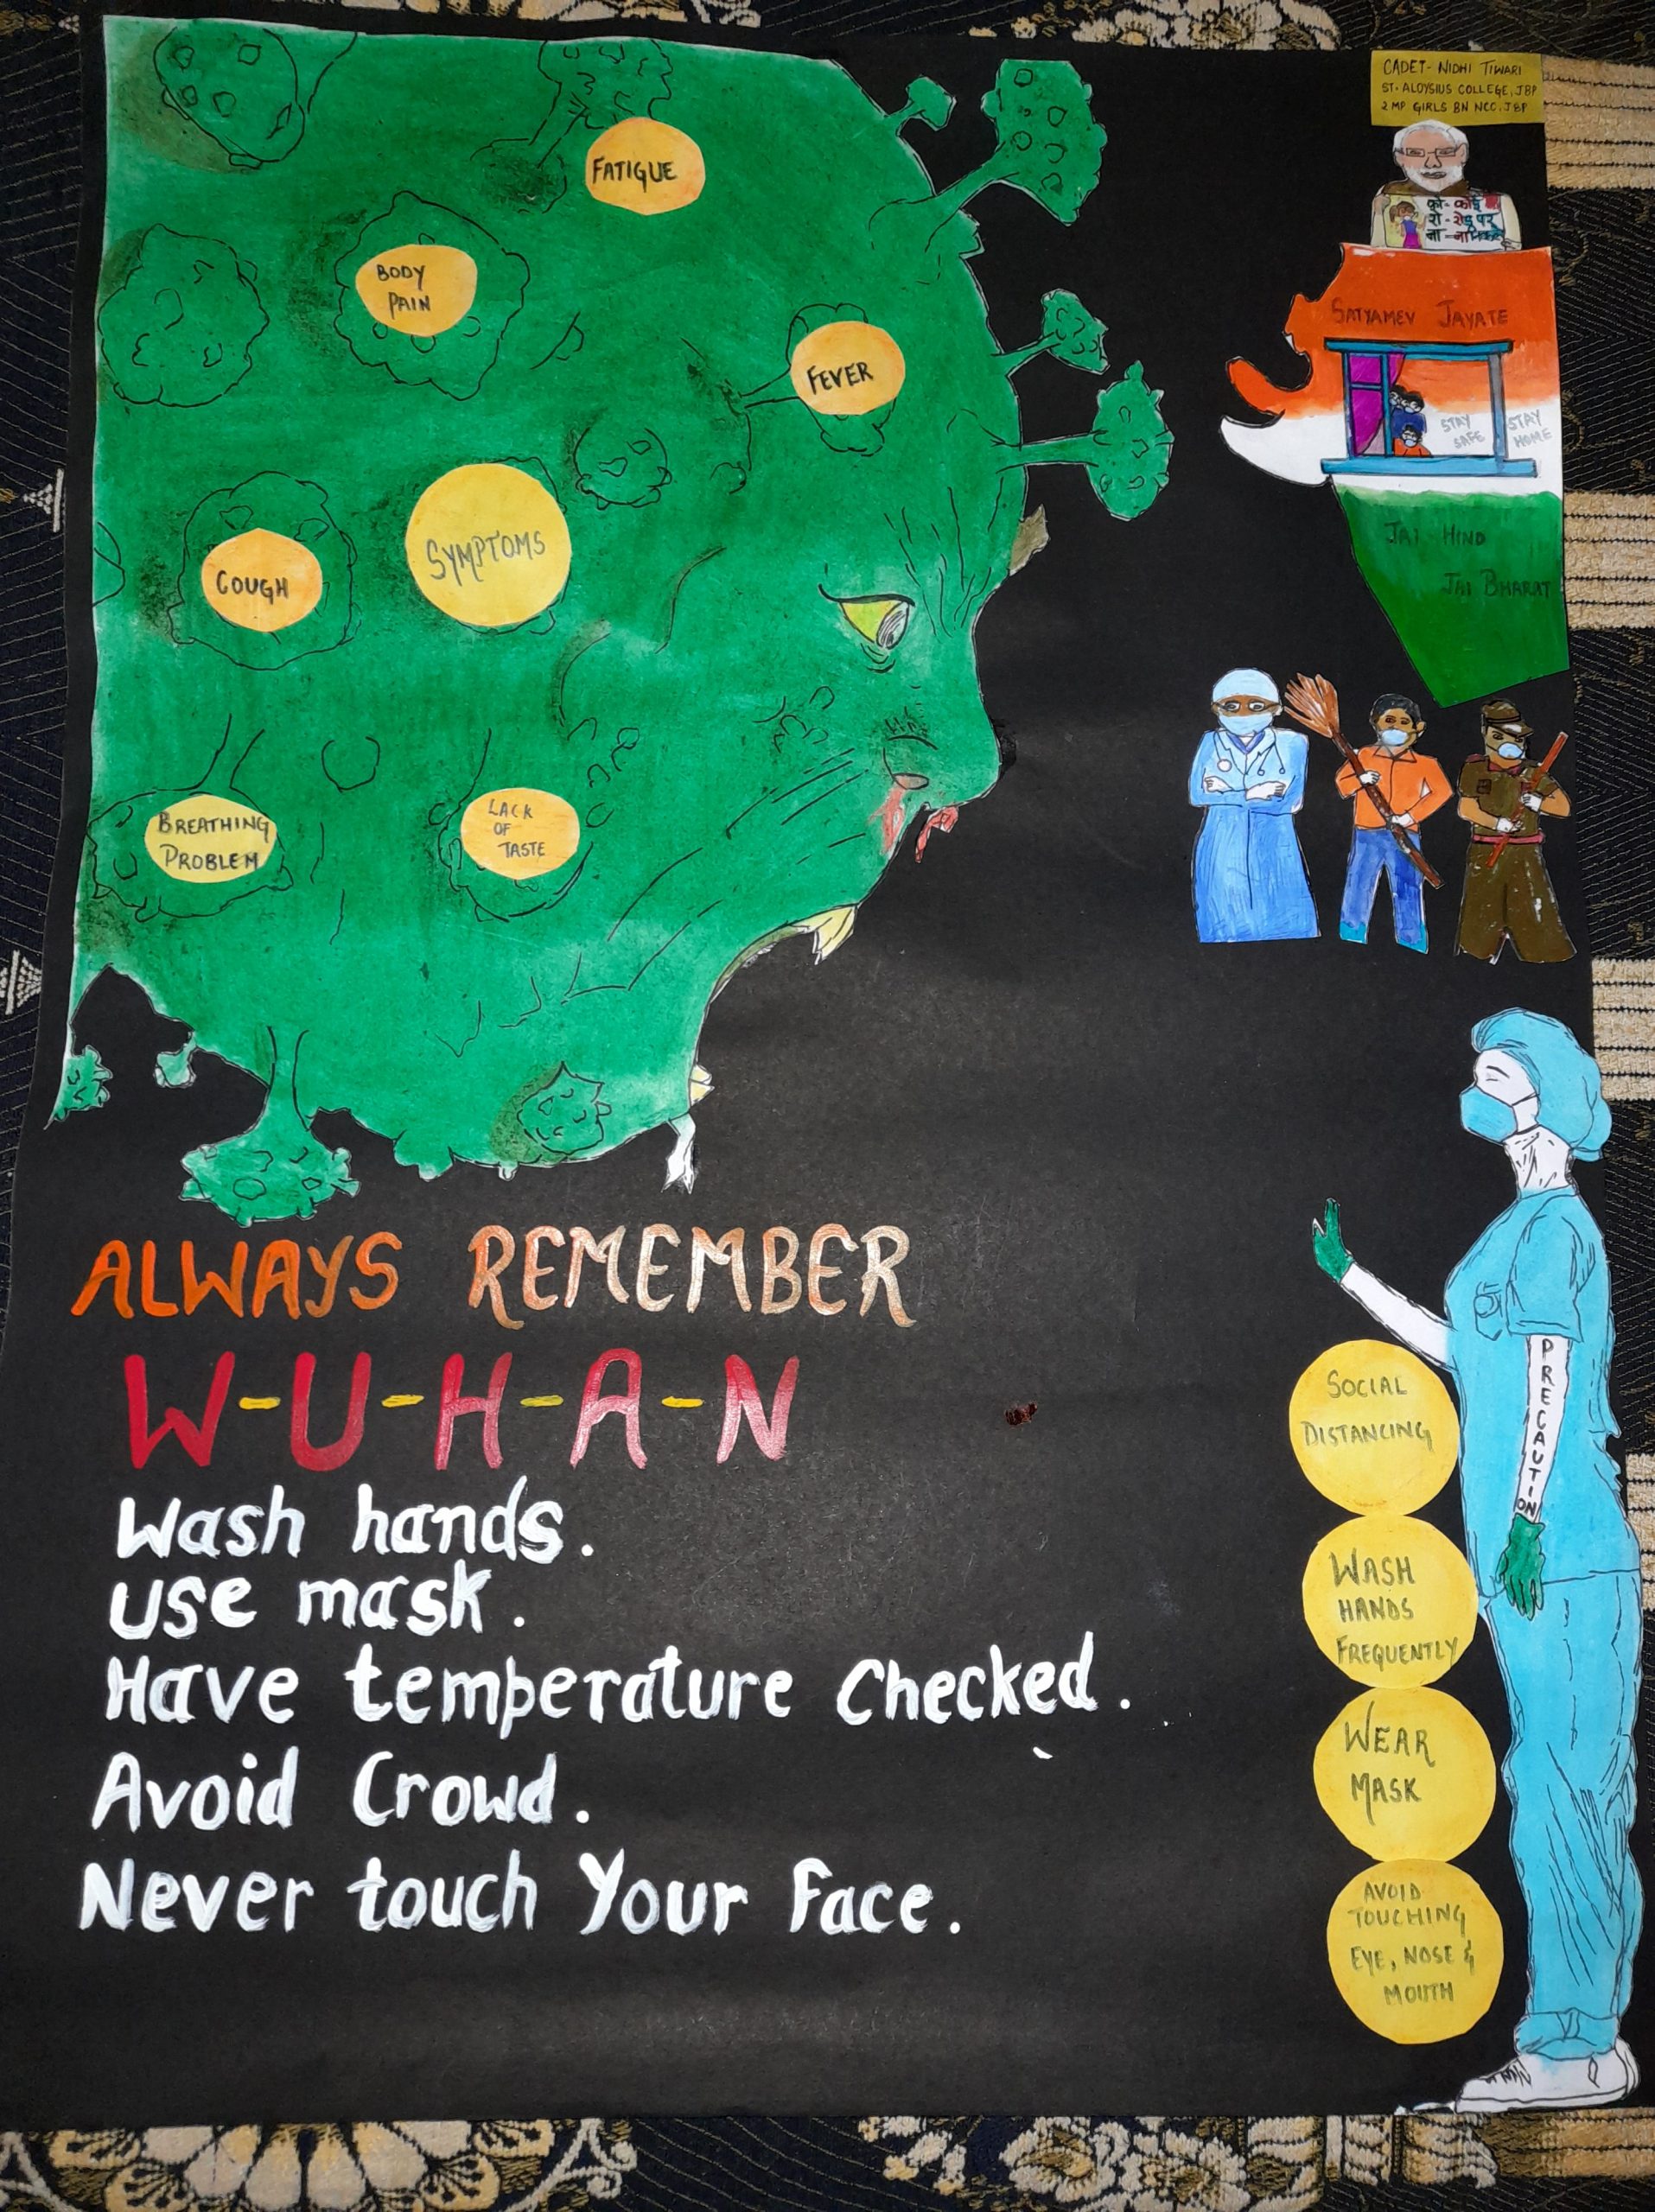 CADET- NIDHI TIWARI
ST. ALOYSIUS COLLEGE, JBP
2 MP GIRLS BN NCC, JBP
को- कोई
रो- रोड पर
ना- ना निकले
SATYAMEV JAYATE
STAY SAFE
STAY HOME
JAI HIND
JAI BHARAT
FATIGUE
BODY
PAIN
FEVER
SYMPTOMS
COUGH
BREATHING
PROBLEM
LACK
OF
TASTE
ALWAYS REMEMBER
W-U-H-A-N
Wash hands.
use mask.
Have temperature checked.
Avoid Crowd.
Never touch Your Face.
PRECAUTION
SOCIAL
DISTANCING
WASH
HANDS
FREQUENTLY
WEAR
MASK
AVOID
TOUCHING
EYE, NOSE &
MOUTH